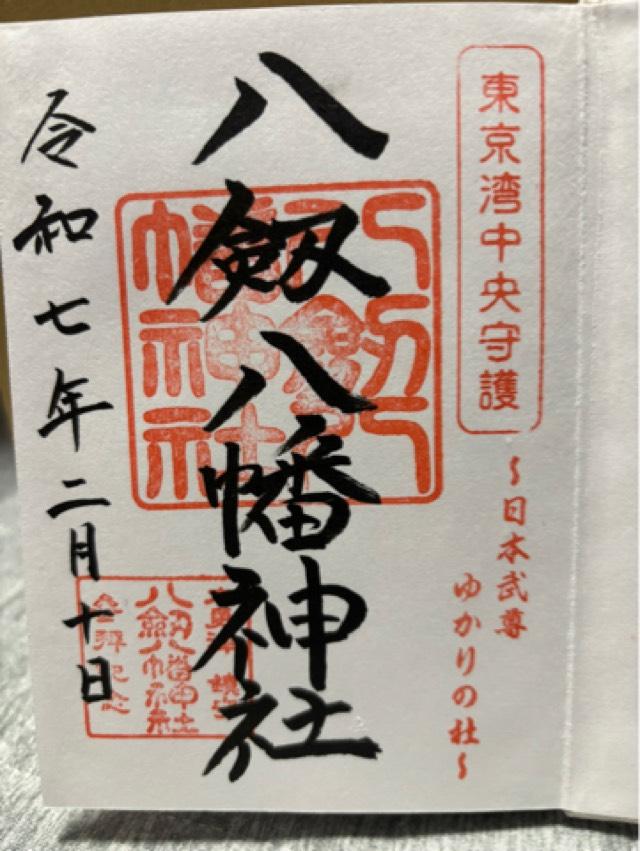 東京湾中央守護
～日本武尊
ゆかりの社～
八劔八幡神社
八劔八幡神社
令和七年二月十日
八劔八幡神社
参拝記念